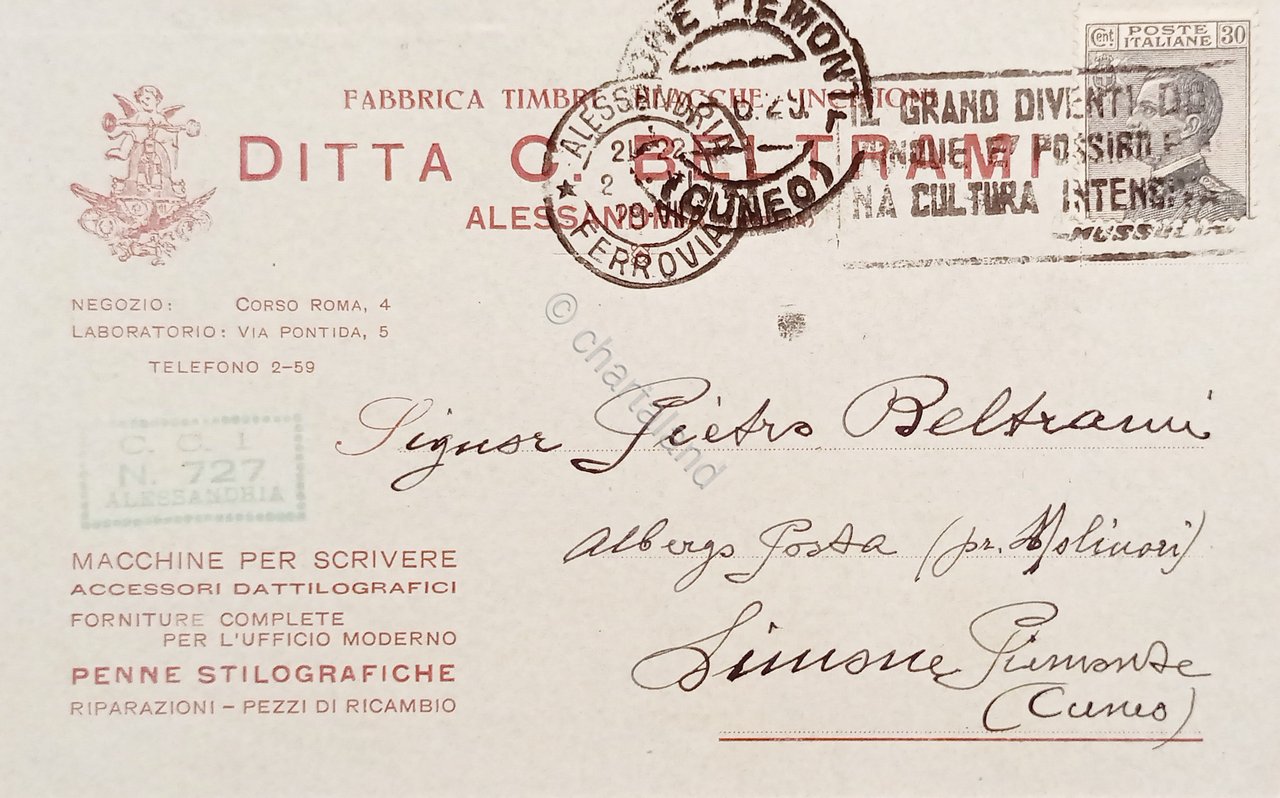 Cent POSTE ITALIANE 30
FABBRICA TIMBRI
DITTA C. BELTRAMI
ALESSANDRIA
ALESSANDRIA
FERROVIA
PIEMONTE
(CUNEO)
IL GRAND DIVENTI
POSSIBILE
NA CULTURA INTENSIVA
NEGOZIO: CORSO ROMA, 4
LABORATORIO: VIA PONTIDA, 5
TELEFONO 2-59
© chartaland
Signor Pietro Beltrami
C. C. I.
N. 727
ALESSANDRIA
Albergo Posta (pr. Molinari)
MACCHINE PER SCRIVERE
ACCESSORI DATTILOGRAFICI
FORNITURE COMPLETE
PER L'UFFICIO MODERNO
PENNE STILOGRAFICHE
RIPARAZIONI – PEZZI DI RICAMBIO
Limone Piemonte
(Cuneo)